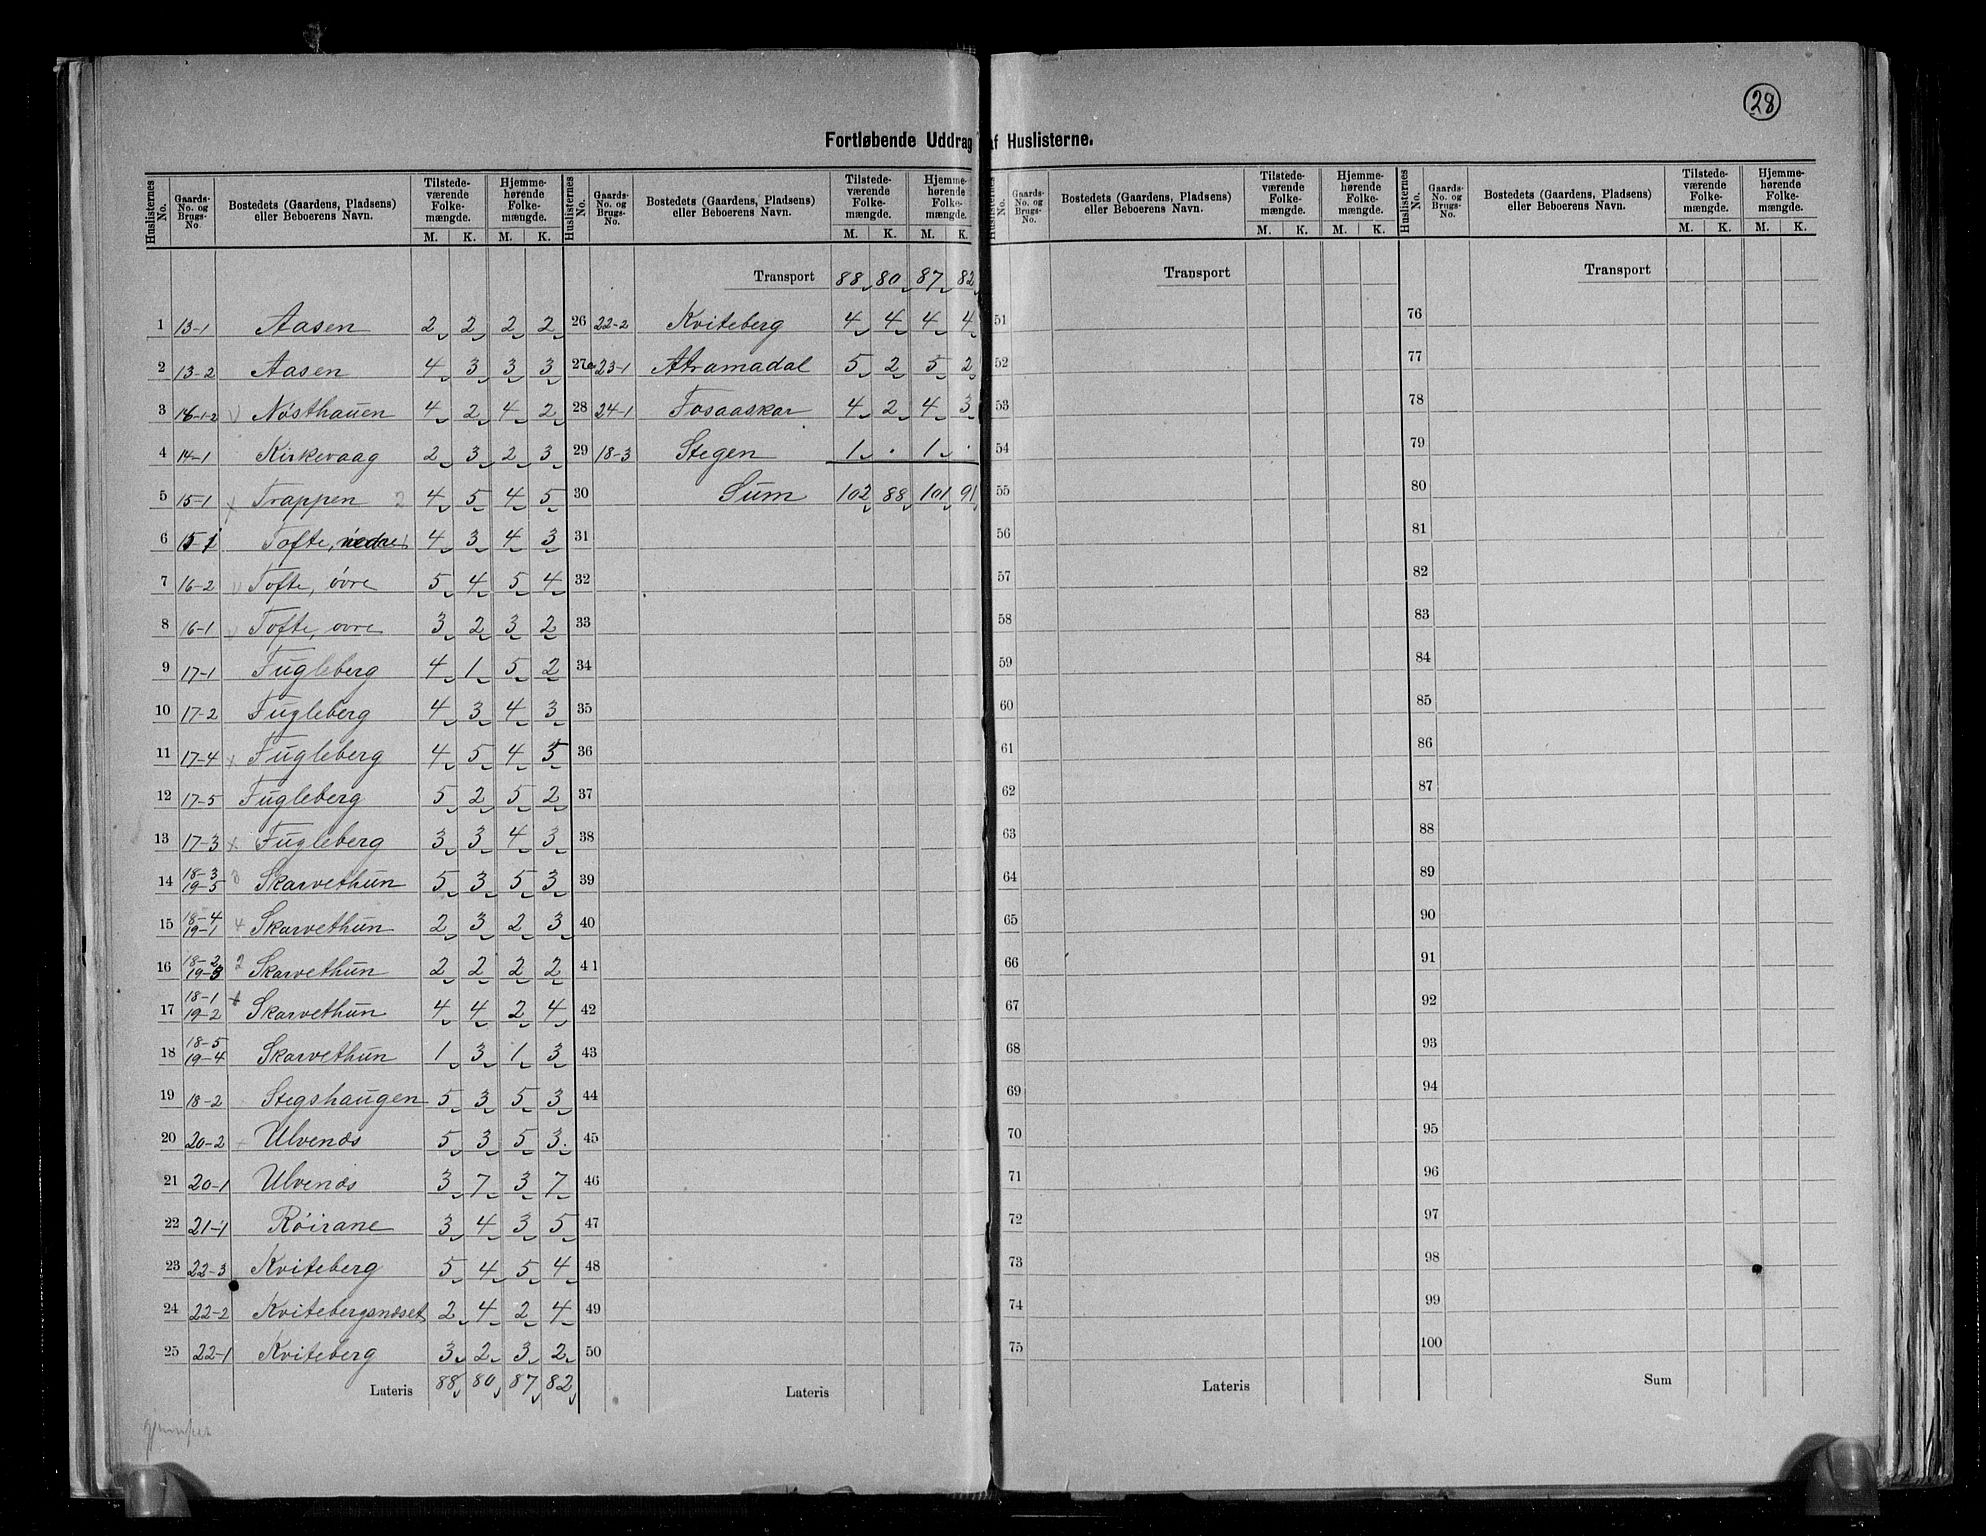 28
Fortløbende Uddrag af Huslisterne.
Huslisternes No. | Gaards-No. og Brugs-No. | Bostedets (Gaardens, Pladsens) eller Beboerens Navn. | Tilstedeværende Folkemængde. M. K. | Hjemmehørende Folkemængde. M. K.
1 13-1 Aasen 2 2 2 2
2 13-2 Aasen 4 3 3 3
3 16-1-2 Nösthauen 4 2 4 2
4 14-1 Kirkevaag 2 3 2 3
5 15-1 Trappen 2 4 5 4 5
6 15-1 Tofte, nedre 4 3 4 3
7 16-2 Tofte, övre 5 4 5 4
8 16-1 Tofte, ovre 3 2 3 2
9 17-1 Fugleberg 4 1 5 2
10 17-2 Fugleberg 4 3 4 3
11 17-4 x Fugleberg 4 5 4 5
12 17-5 Fugleberg 5 2 5 2
13 17-3 x Fugleberg 3 3 4 3
14 18-3 19-5 3 Skarvethun 5 3 5 3
15 18-4 19-1 4 Skarvethun 2 3 2 3
16 18-2 19-3 2 Skarvethun 2 2 2 2
17 18-1 19-2 Skarvethun 4 4 2 4
18 18-5 19-4 Skarvethun 1 3 1 3
19 18-2 Stegshaugen 5 3 5 3
20 20-2 Ulvenæs 5 3 5 3
21 20-1 Ulvenæs 3 7 3 7
22 21-1 Röirane 3 4 3 5
23 22-3 Kviteberg 5 4 5 4
24 22-2 Kvitebergsnæset 2 4 2 4
25 22-1 Kviteberg 3 2 3 2
Lateris 88 80 87 82
Huslisternes No. | Gaards-No. og Brugs-No. | Bostedets (Gaardens, Pladsens) eller Beboerens Navn. | Tilstedeværende Folkemængde. M. K. | Hjemmehørende Folkemængde. M. K.
Transport 88 80 87 82
26 22-2 Kviteberg 4 4 4 4
27 23-1 Atramadal 5 2 5 2
28 24-1 Fosaaskar 4 2 4 3
29 18-3 Stegen 1 . 1 .
30 Sum 102 88 101 91
31
32
33
34
35
36
37
38
39
40
41
42
43
44
45
46
47
48
49
50
Lateris
Huslisternes No. | Gaards-No. og Brugs-No. | Bostedets (Gaardens, Pladsens) eller Beboerens Navn. | Tilstedeværende Folkemængde. M. K. | Hjemmehørende Folkemængde. M. K.
Transport
51
52
53
54
55
56
57
58
59
60
61
62
63
64
65
66
67
68
69
70
71
72
73
74
75
Lateris
Huslisternes No. | Gaards-No. og Brugs-No. | Bostedets (Gaardens, Pladsens) eller Beboerens Navn. | Tilstedeværende Folkemængde. M. K. | Hjemmehørende Folkemængde. M. K.
Transport
76
77
78
79
80
81
82
83
84
85
86
87
88
89
90
91
92
93
94
95
96
97
98
99
100
Sum